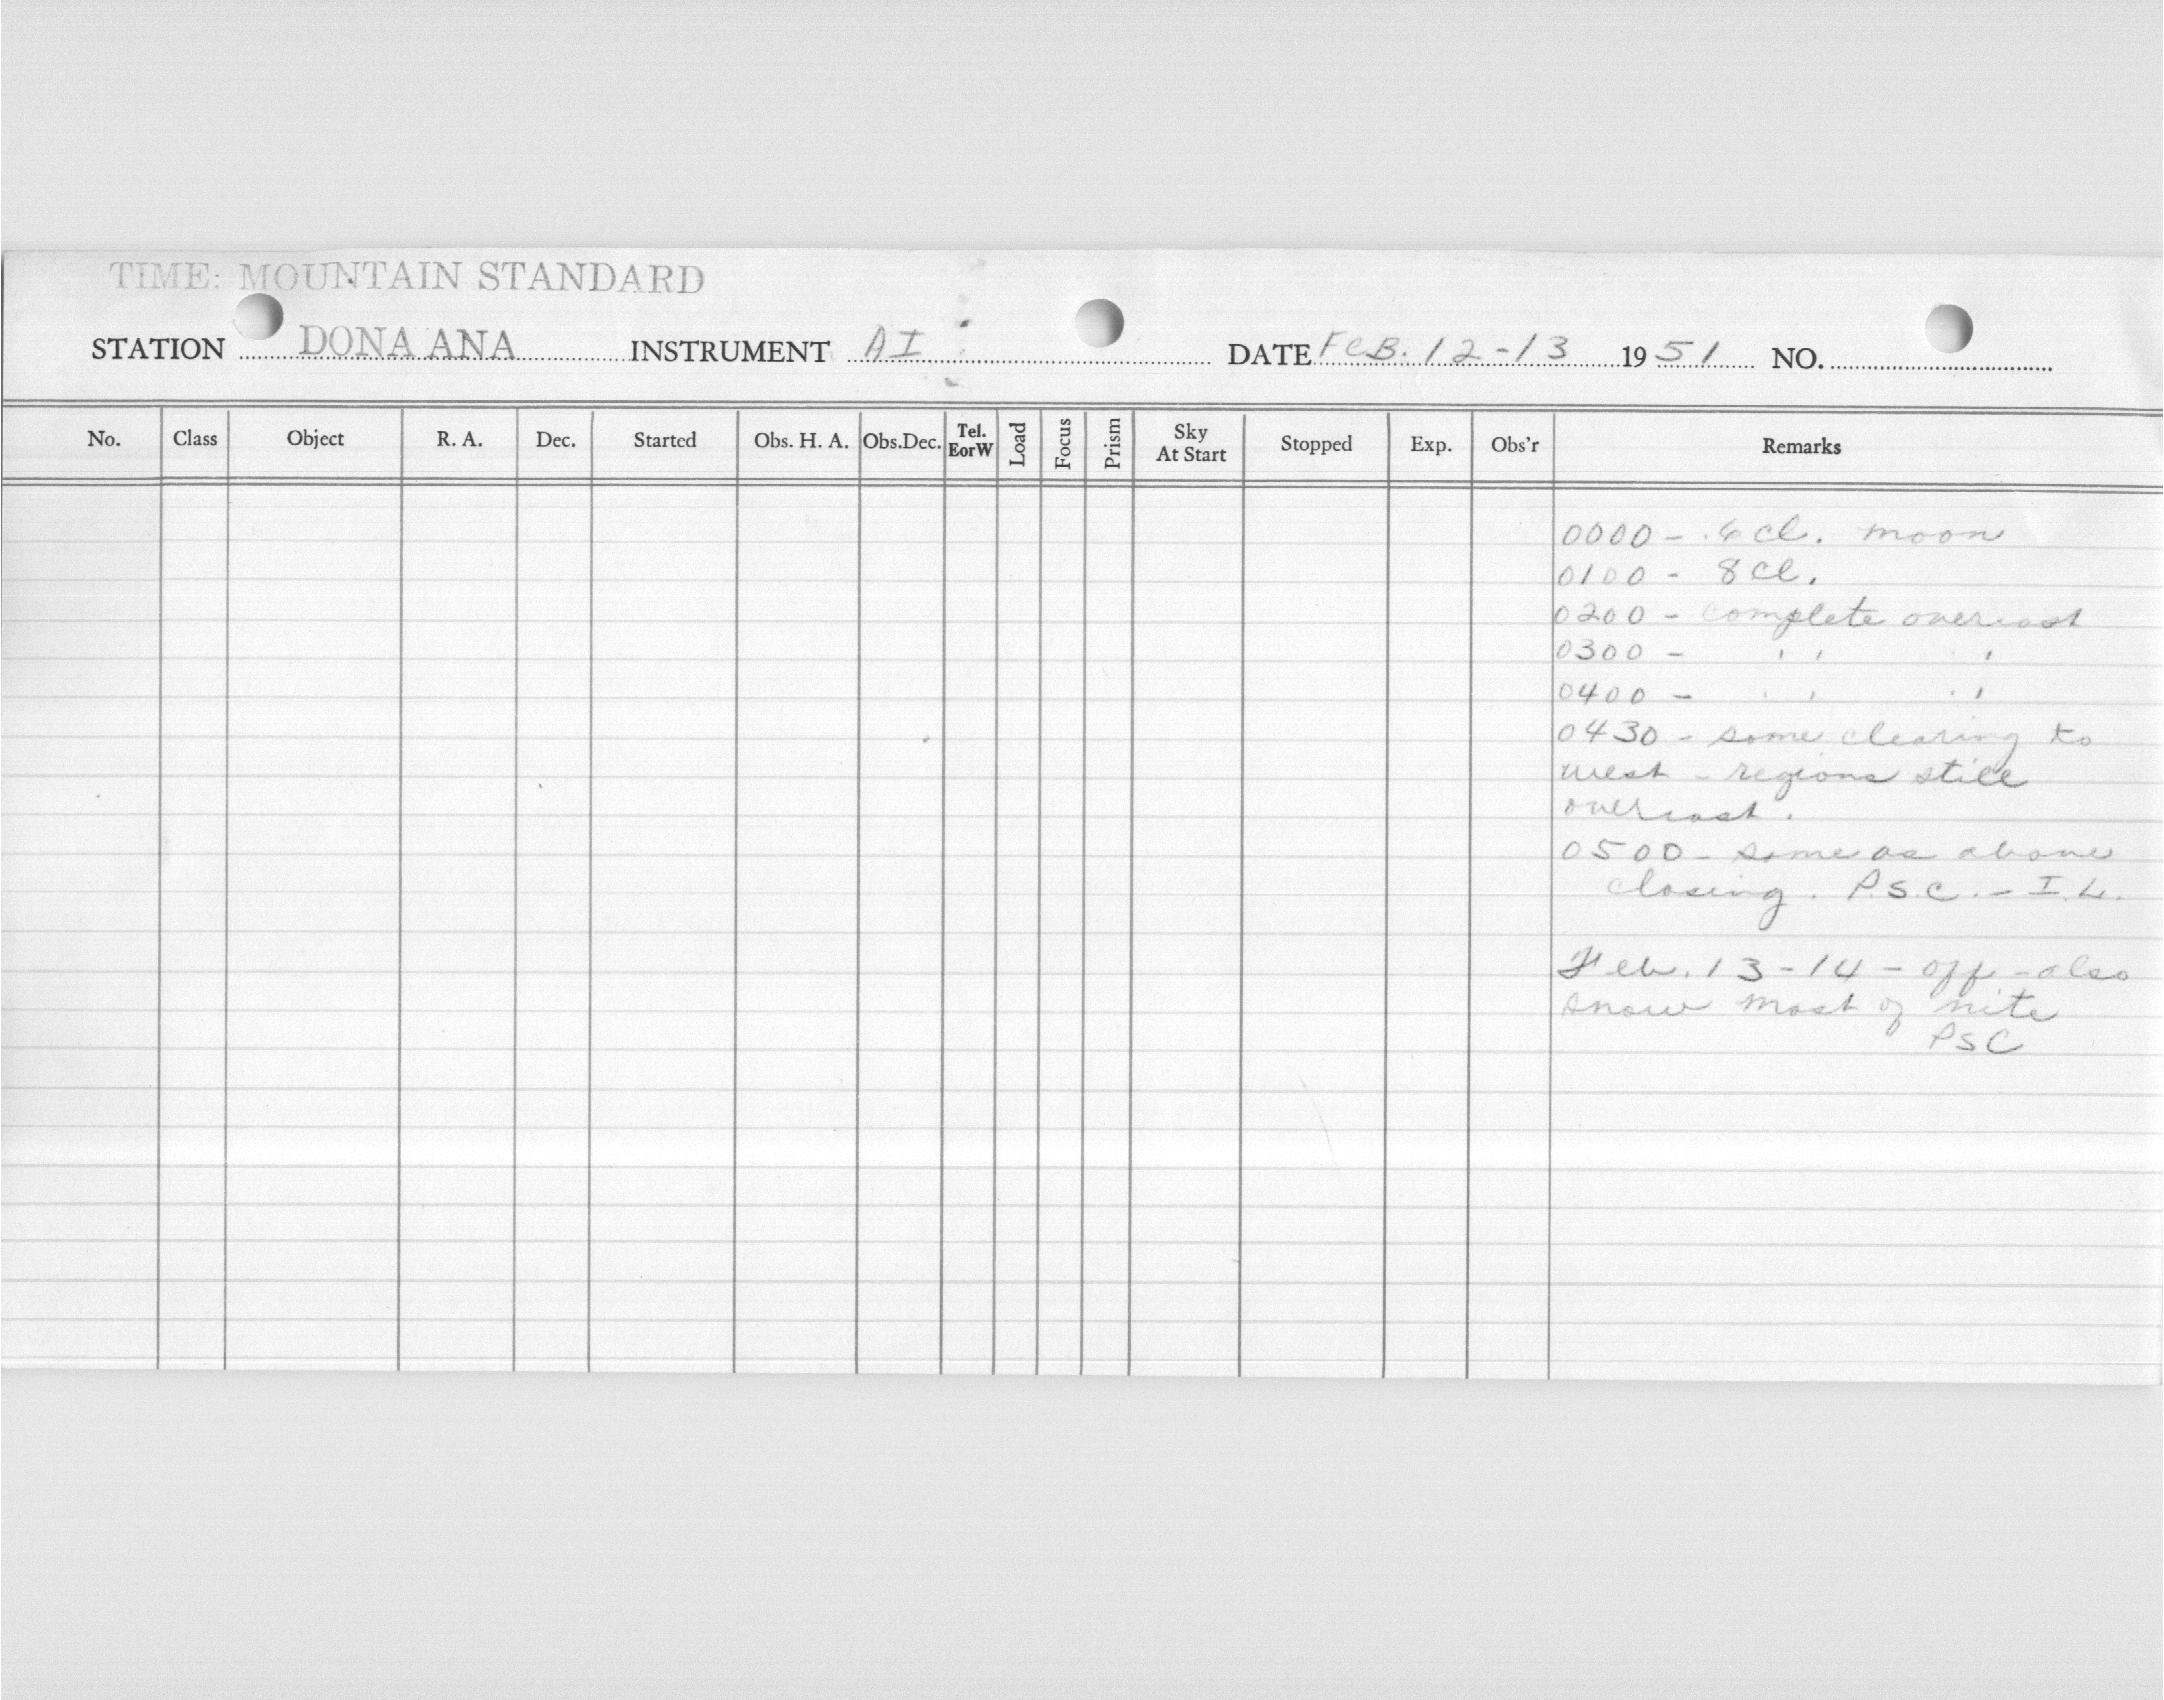 TIME: MOUNTAIN STANDARD
STATION DONA ANA INSTRUMENT AI DATE FEB. 12-13 1951 NO.
No. Class Object R. A. Dec. Started Obs. H. A. Obs.Dec. Tel. EorW Load Focus Prism Sky At Start Stopped Exp. Obs'r Remarks
0000 - .6 cl. moon
0100 - 8 cl.
0200 - complete overcast
0300 - " "
0400 - " "
0430 - some clearing to
west - regions still
overcast.
0500 - same as above
closing. P.S.C. - I.L.
Feb. 13-14 - off - also
snow most of nite
PSC